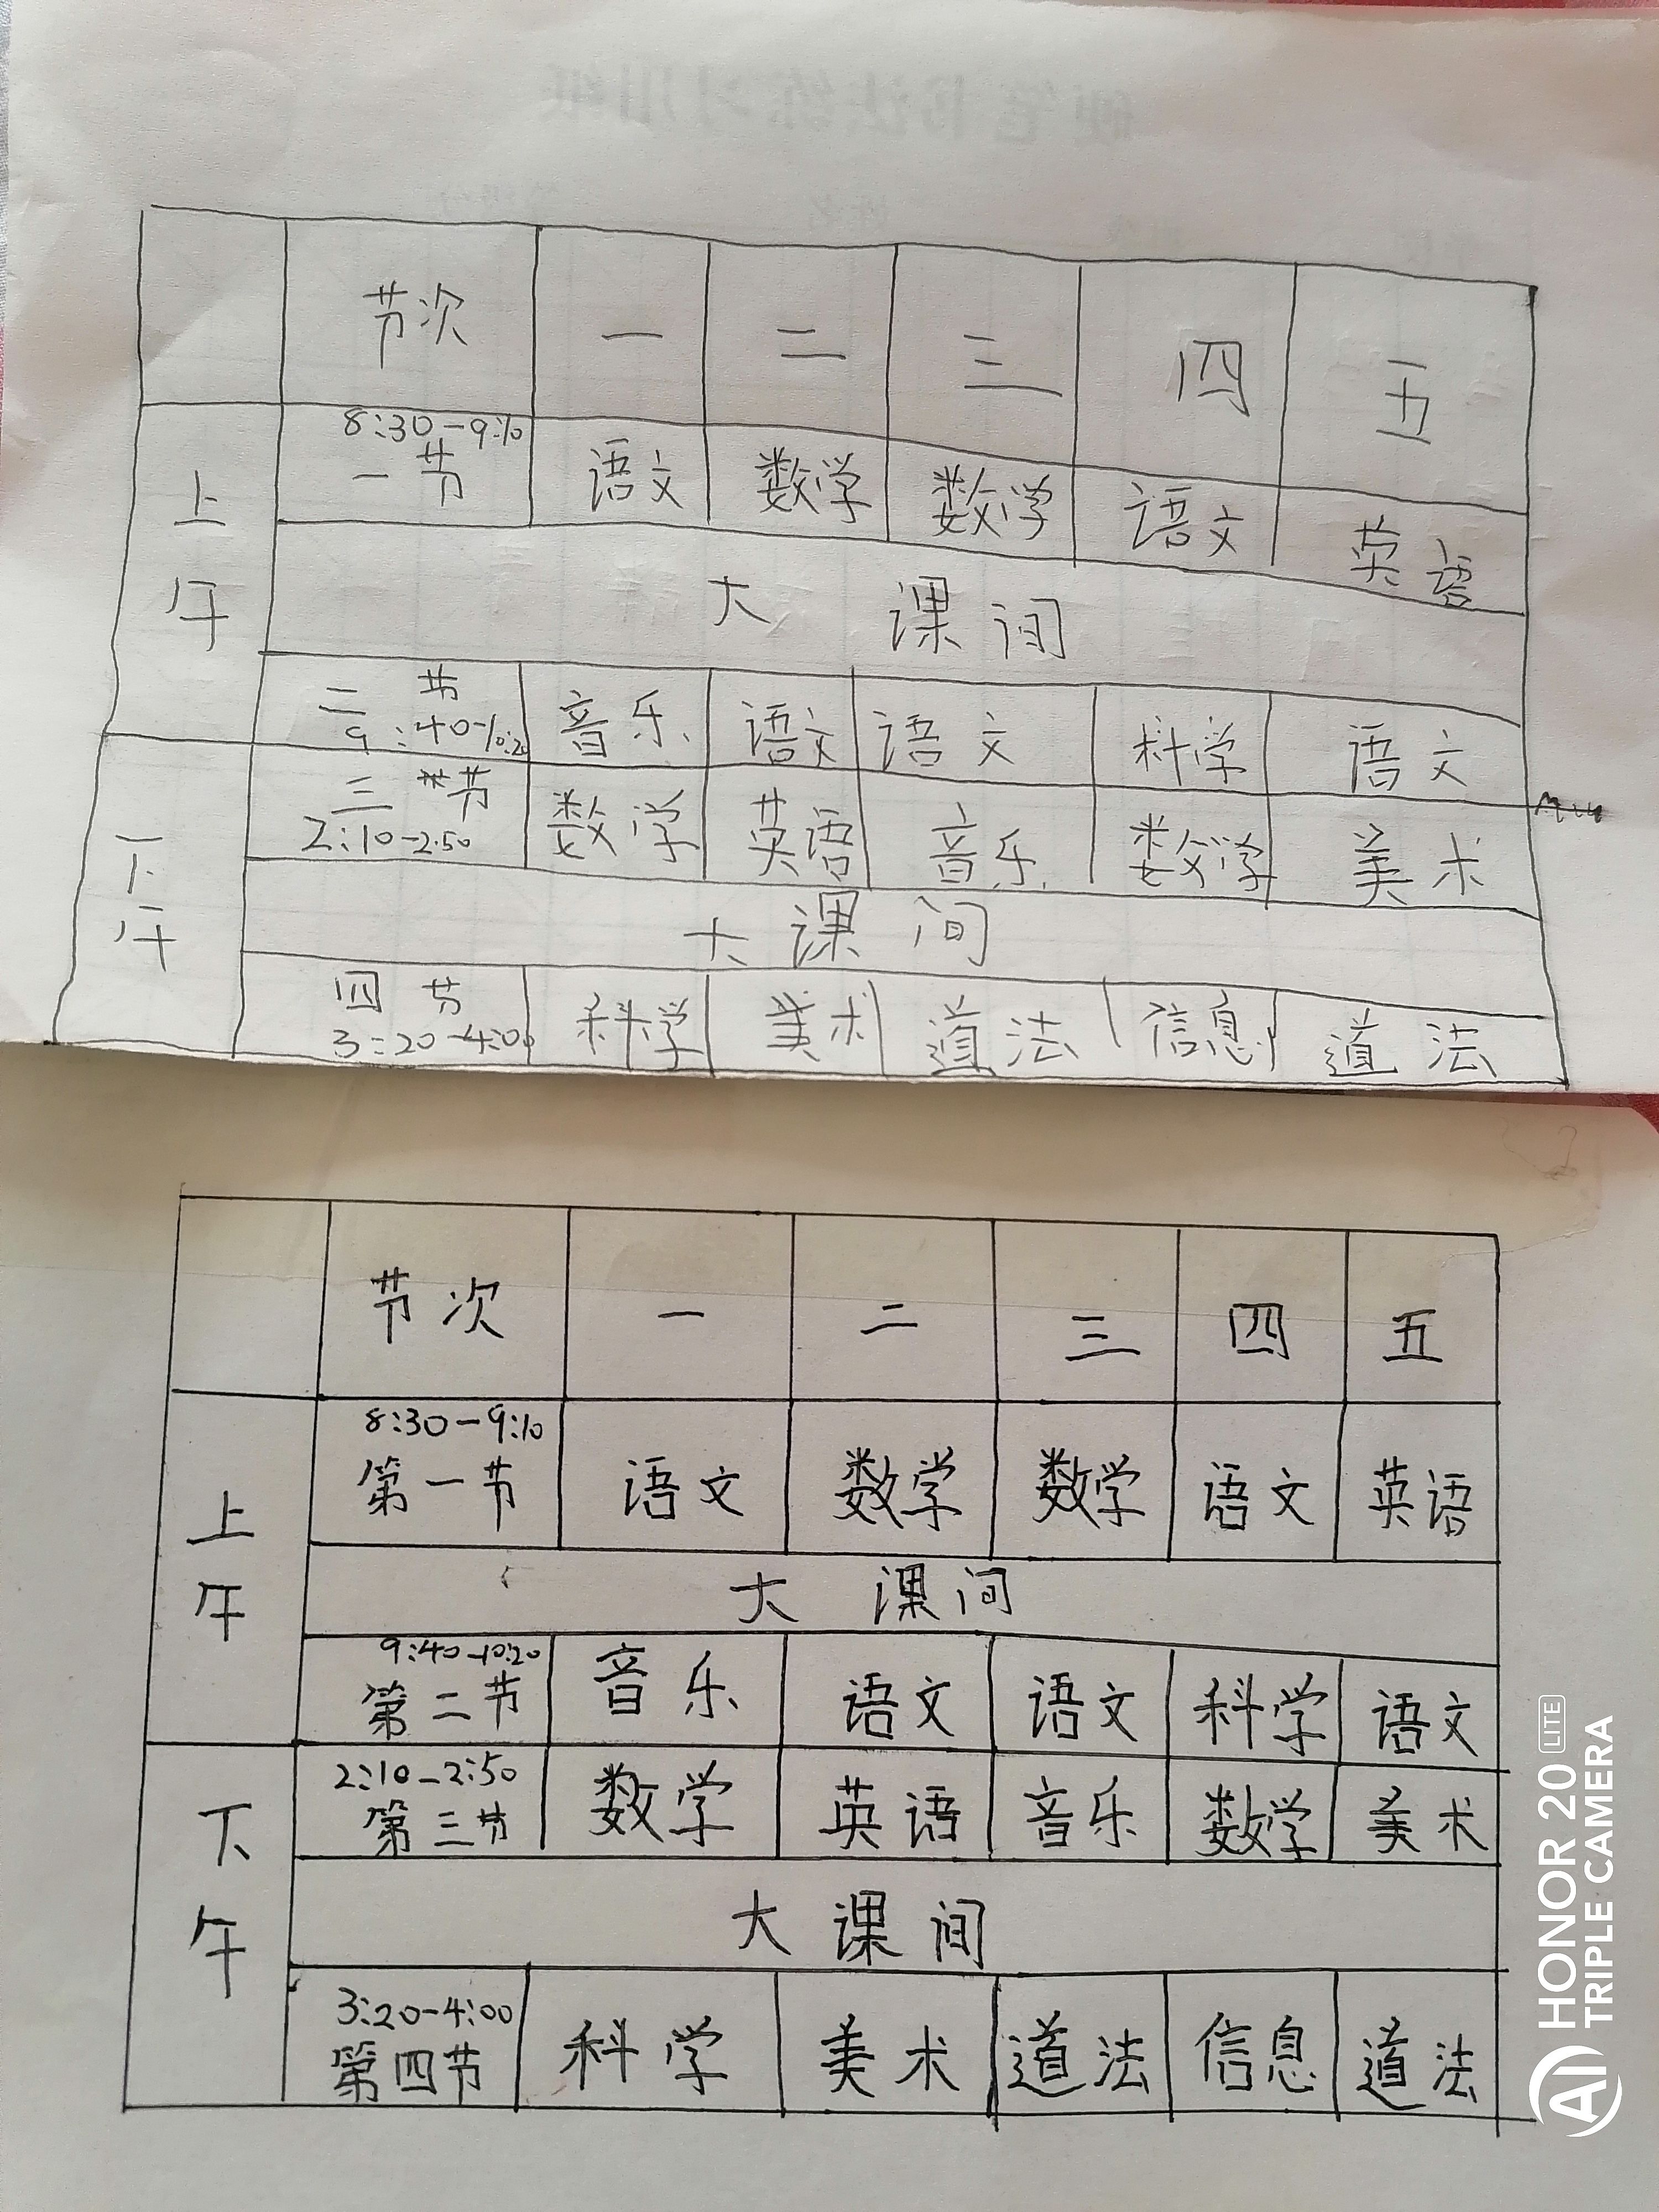 硬笔书法练习用纸
姓名
节次 一 二 三 四 五
上午
8:30-9:10
一节 语文 数学 数学 语文 英语
大 课间
二 节 音乐 语文 语文 科学 语文
9:40-10:20
下午
三 节 数学 英语 音乐 数学 美术
2:10-2:50
大 课 间
四 节 科学 美术 道法 信息 道法
3:20-4:00
节次 一 二 三 四 五
上午
8:30-9:10
第一节 语文 数学 数学 语文 英语
大 课间
9:40-10:20
第二节 音乐 语文 语文 科学 语文
下午
2:10-2:50
第三节 数学 英语 音乐 数学 美术
大 课 间
3:20-4:00
第四节 科学 美术 道法 信息 道法
HONOR 20 LITE
TRIPLE CAMERA
AI